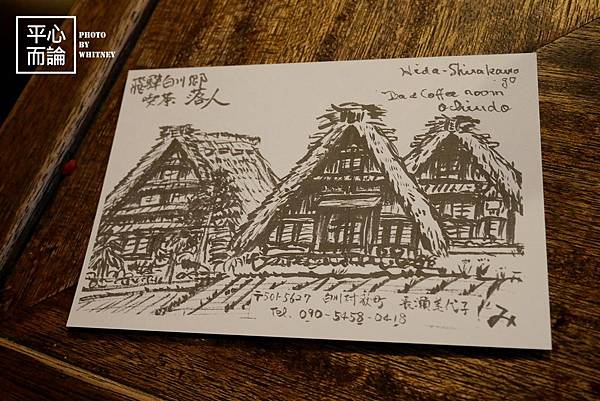 平心
而論
PHOTO
BY
WHITNEY
飛騨白川郷
喫茶 落人
Hida-Shirakawa
go
Tea & Coffee room
Ochiudo
〒501-5627 白川村荻町 長瀬美代子
Tel. 090-5458-0418
み